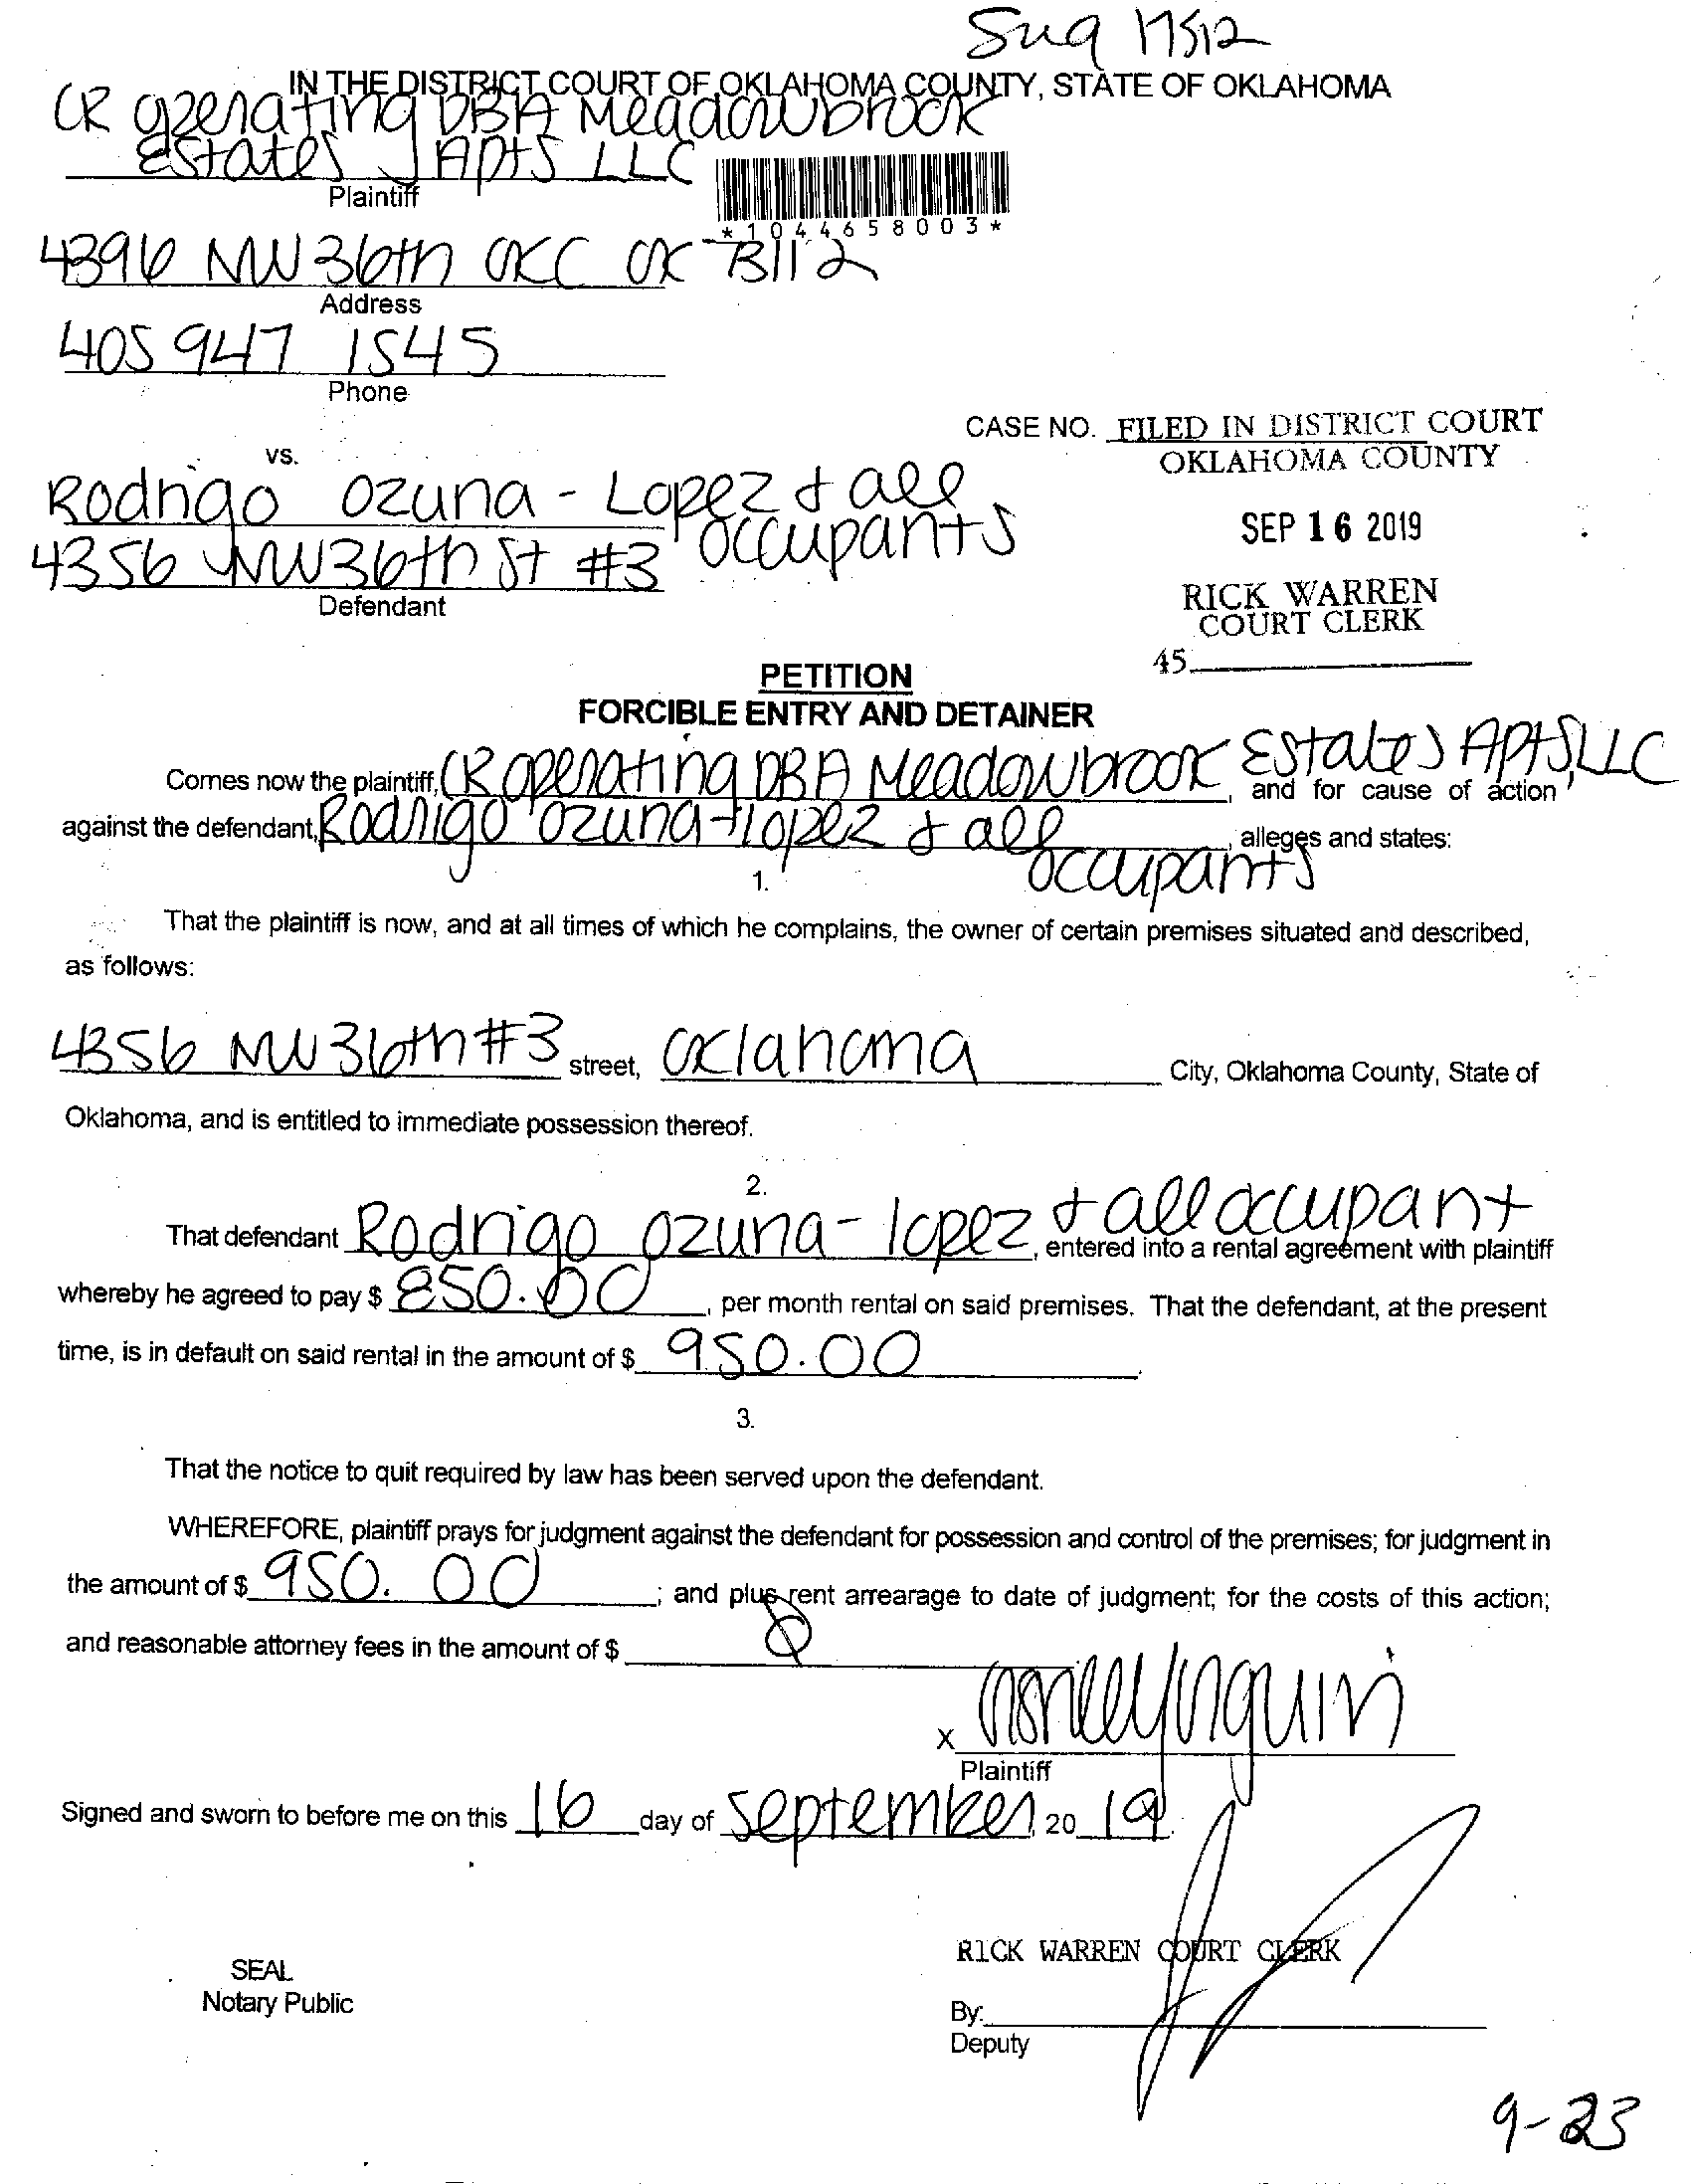 IN THE DISTRICT COURT OF OKLAHOMA COUNTY, STATE OF OKLAHOMA
CR operating DBA Meadowbrook
Estates Apts LLC
Plaintiff
*1044658003*
4396 NW 36th OKC OK 73112
Address
405 947 1545
Phone
CASE NO. FILED IN DISTRICT COURT
OKLAHOMA COUNTY
vs.
Rodrigo Ozuna - Lopez & all
occupants
SEP 16 2019
4356 NW 36th St #3
Defendant
RICK WARREN
COURT CLERK
45
PETITION
FORCIBLE ENTRY AND DETAINER
Comes now the plaintiff, CR operating DBA Meadowbrook Estates Apts, LLC, and for cause of action
against the defendant, Rodrigo Ozuna-lopez & all occupants, alleges and states:
1.
That the plaintiff is now, and at all times of which he complains, the owner of certain premises situated and described,
as follows:
4356 NW 36th #3 street, Oklahoma City, Oklahoma County, State of
Oklahoma, and is entitled to immediate possession thereof.
2.
That defendant Rodrigo Ozuna - lopez & all occupant, entered into a rental agreement with plaintiff
whereby he agreed to pay $ 850.00, per month rental on said premises. That the defendant, at the present
time, is in default on said rental in the amount of $ 950.00.
3.
That the notice to quit required by law has been served upon the defendant.
WHEREFORE, plaintiff prays for judgment against the defendant for possession and control of the premises; for judgment in
the amount of $ 950.00; and plus rent arrearage to date of judgment; for the costs of this action;
and reasonable attorney fees in the amount of $
X
Plaintiff
Signed and sworn to before me on this 16 day of September, 20 19.
RICK WARREN COURT CLERK
SEAL
Notary Public
By:
Deputy
9-23